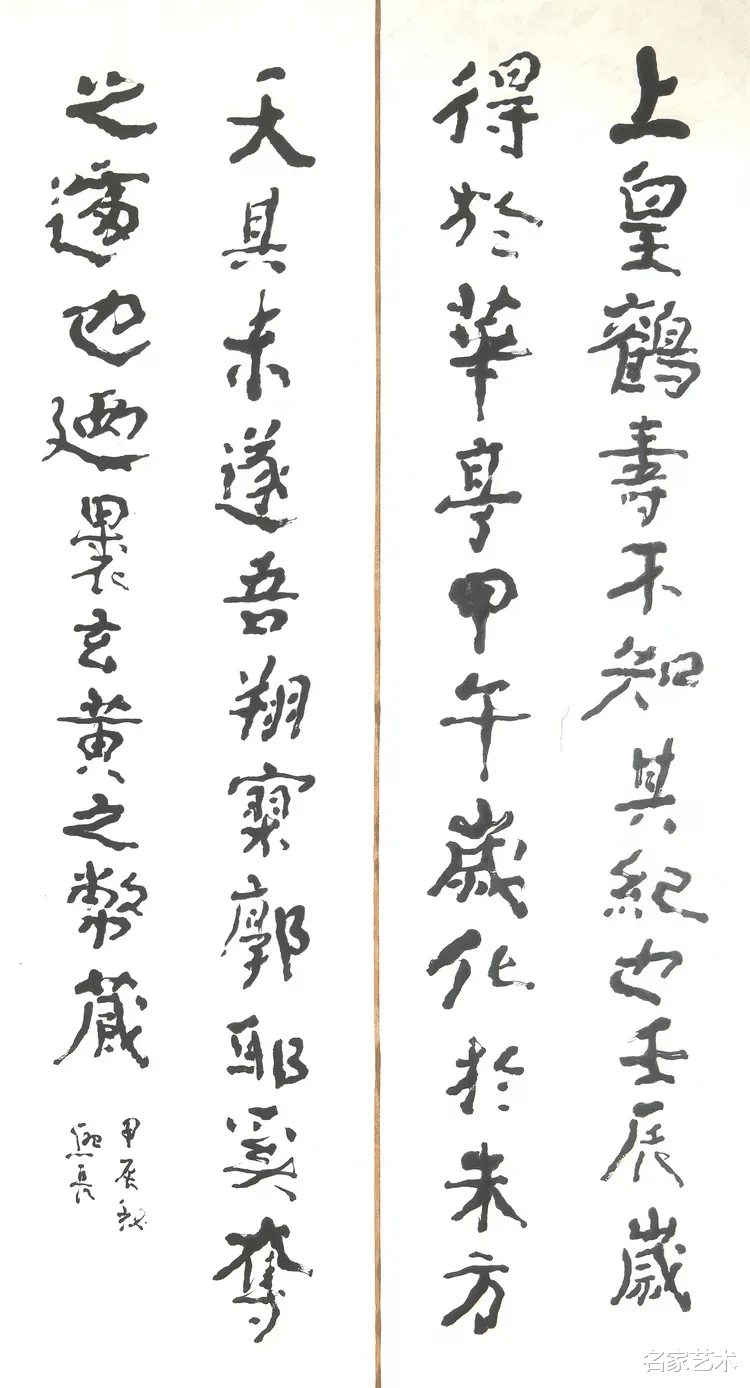 上皇鶴壽不知其紀也壬辰歲
得於華亭甲午歲化於朱方
天其未遂吾翔寥廓耶奚奪
之遽也廼裹玄黃之幣藏
甲辰秋
名家艺术